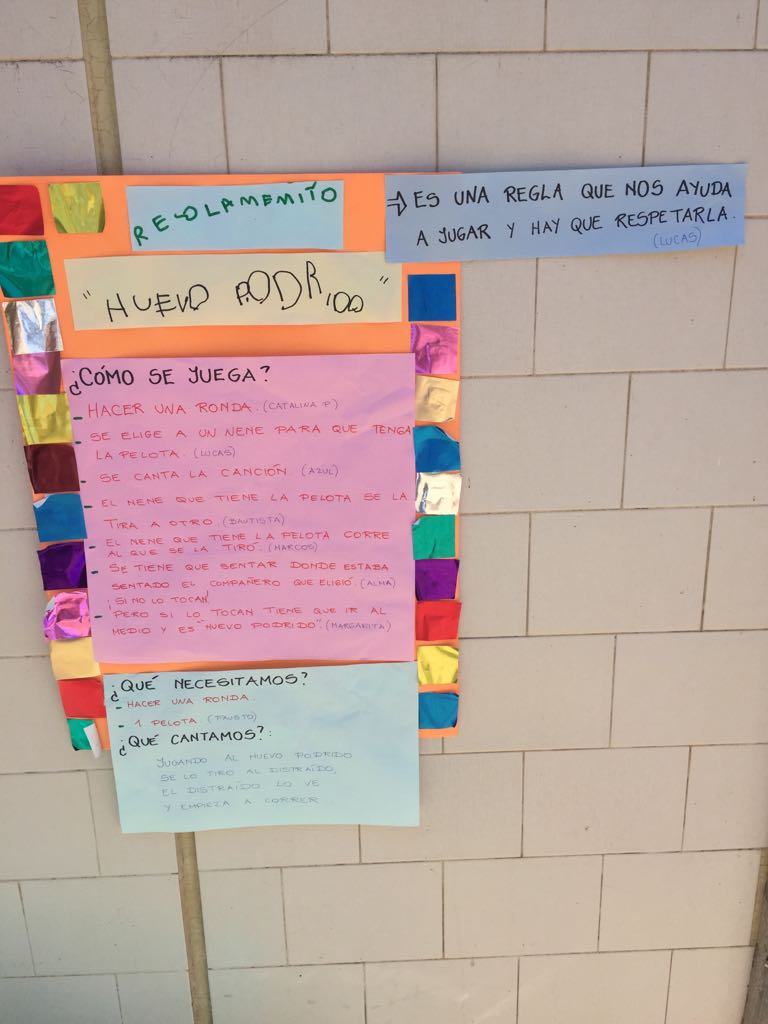 REGLAMEMITO
→ ES UNA REGLA QUE NOS AYUDA
A JUGAR Y HAY QUE RESPETARLA.
(LUCAS)
"HUEVO PODRIDO"
¿CÓMO SE JUEGA?
- HACER UNA RONDA. (CATALINA P)
- SE ELIGE A UN NENE PARA QUE TENGA
LA PELOTA. (LUCAS)
- SE CANTA LA CANCIÓN (AZUL)
- EL NENE QUE TIENE LA PELOTA SE LA
TIRA A OTRO. (BAUTISTA)
- EL NENE QUE TIENE LA PELOTA CORRE
AL QUE SE LA TIRÓ. (MARCOS)
- SE TIENE QUE SENTAR DONDE ESTABA
SENTADO EL COMPAÑERO QUE ELIGIÓ. (ALMA)
¡SI NO LO TOCAN!
- PERO SI LO TOCAN TIENE QUE IR AL
MEDIO Y ES "HUEVO PODRIDO". (MARGARITA)
¿QUÉ NECESITAMOS?
- HACER UNA RONDA.
- 1 PELOTA. (FAUSTO)
¿QUÉ CANTAMOS?:
JUGANDO AL HUEVO PODRIDO
SE LO TIRO AL DISTRAÍDO,
EL DISTRAÍDO LO VE
Y EMPIEZA A CORRER